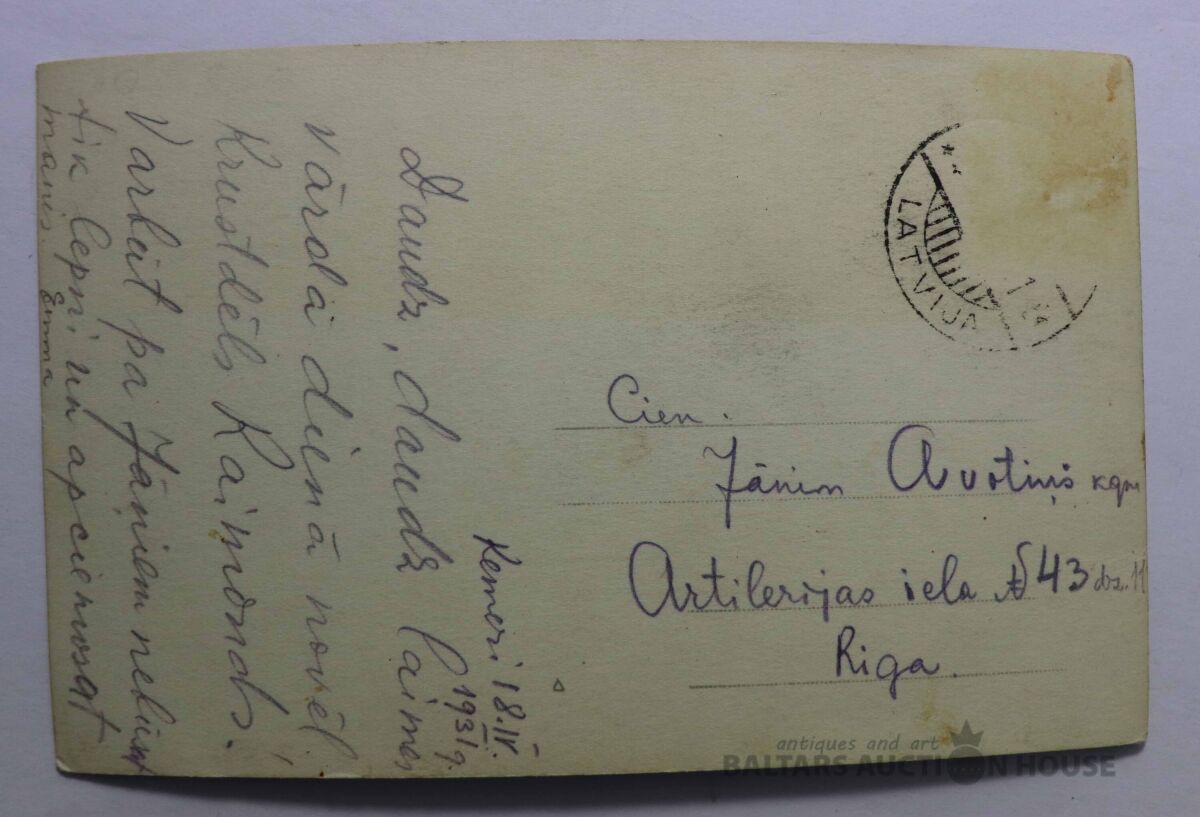 Daudz, daudz laimes
vārda dienā novēl
Krustdēls Raimonds.
Varbūt pa Jāņiem nebūsat
tik lepni un apciemosat
manis.
Emma
Kemeri 18.IV.
1931 g.
LATVIJA
Cien.
Jānim Avotiņš kgm
Artilerijas iela № 43 dz. 11
Riga.
antiques and art
BALTARS AUCTION HOUSE